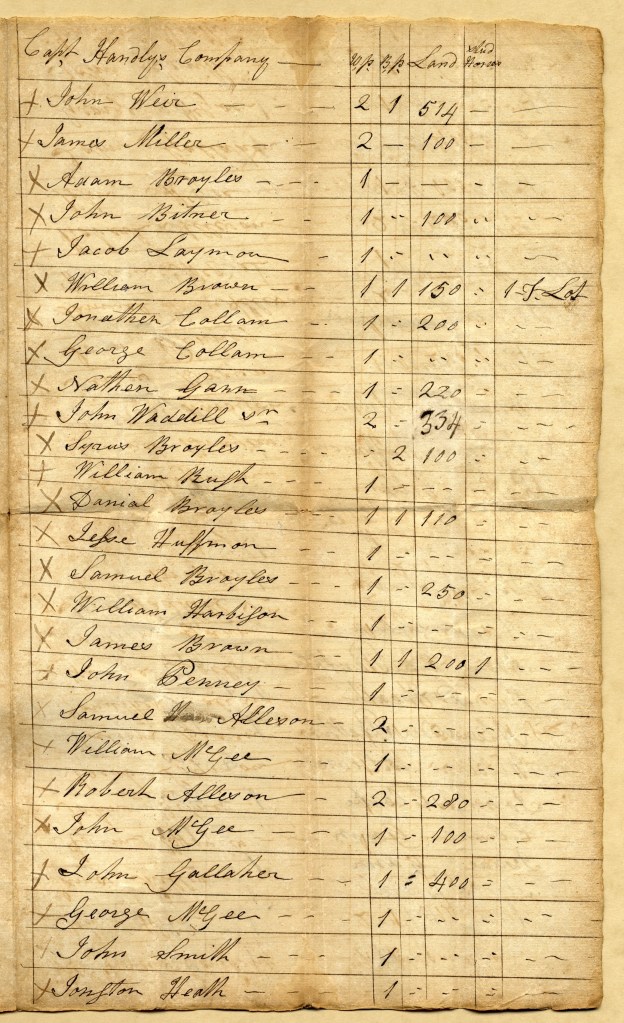 Capt Handlys Company — W.P. B.P. Land Stud Horses
+ John Weir - - - 2 1 514 - -
+ James Miller - - - 2 - 100 - -
X Adam Broyles - - - 1 - - - -
X John Bitner - - - 1 - 100 - -
+ Jacob Laymon - - 1 - - - -
X William Brown - - 1 1 150 - 1 T. Lot
X Jonathen Collam - - 1 - 200 - -
X George Collam - - 1 - - - -
X Nathen Gann - - 1 - 220 - -
+ John Waddill Sr 2 - 334 - -
X Syrus Broyles - - - 2 100 - -
+ William Bugh - - - 1 - - - -
X Danial Broyles - - 1 1 110 - -
X Jesse Huffmon - - 1 - - - -
X Samuel Broyles - - 1 - 250 - -
X William Harbison - - 1 - - - -
X James Brown - - 1 1 200 1 -
+ John Penney - - - 1 - - - -
X Samuel Allexon - 2 - - - -
+ William McGee - - - 1 - - - -
+ Robert Allexon - - 2 - 280 - -
X John McGee - - - 1 - 100 - -
+ John Gallaher - - 1 - 400 - -
+ George McGee - - - 1 - - - -
+ John Smith - - - 1 - - - -
+ Heath - - - 1 - - - -